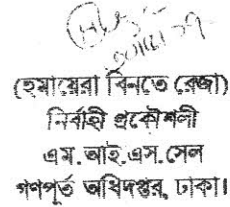 (হুমায়েরা বিনতে রেজা)
নির্বাহী প্রকৌশলী
এম.আই.এস.সেল
গণপূর্ত অধিদপ্তর, ঢাকা।